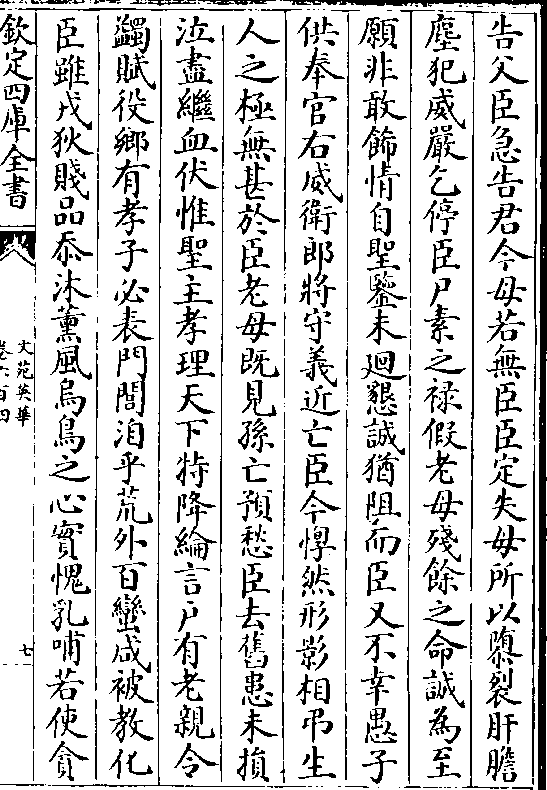 告父臣急告君今母若無臣臣定失母所以隳裂肝膽
塵犯威嚴乞停臣尸素之禄假老母殘餘之命誠為至
願非敢飾情自聖鑒未廻懇誠猶阻而臣又不幸愚子
供奉官右威衛郎將守義近亡臣今惸然形影相弔生
人之極無甚於臣老母既見孫亡預愁臣去舊患未損
泣盡繼血伏惟聖主孝理天下特降綸言户有老親令
蠲賦役鄉有孝子必表門閭洎乎荒外百蠻咸被教化
臣雖戎狄賤品忝沐薰風烏鳥之心實愧乳哺若使貪
欽定四庫全書
文苑英華
卷六百四
七